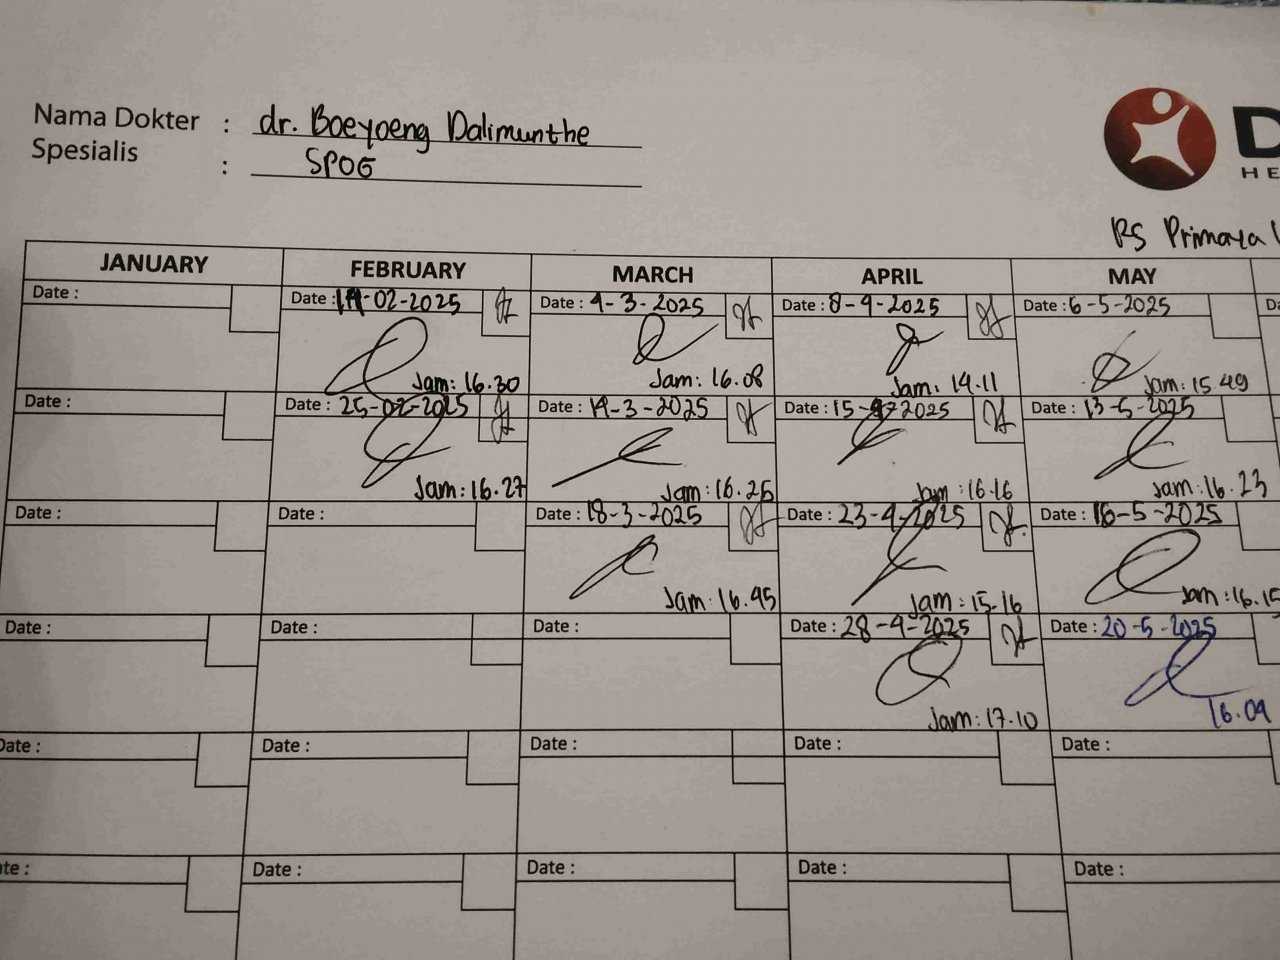 Nama Dokter : dr. Boeyoeng Dalimunthe
Spesialis : SPOG
D
HE
RS Primaya
JANUARY FEBRUARY MARCH APRIL MAY
Date : Date : 14-02-2025 Date : 4-3-2025 Date : 8-4-2025 Date : 6-5-2025 Da
Jam: 16.30 Jam: 16.08 Jam: 14.11 Jam: 15.49
Date : Date : 25-02-2025 Date : 14-3-2025 Date : 15-4-2025 Date : 13-5-2025
Jam: 16.27 Jam: 16.25 Jam: 16.16 Jam: 16.23
Date : Date : Date : 18-3-2025 Date : 23-4-2025 Date : 16-5-2025
Jam: 16.45 Jam: 15.16 Jam: 16.15
Date : Date : Date : Date : 28-4-2025 Date : 20-5-2025
Jam: 17.10 16.09
Date : Date : Date : Date : Date :
te : Date : Date : Date : Date :